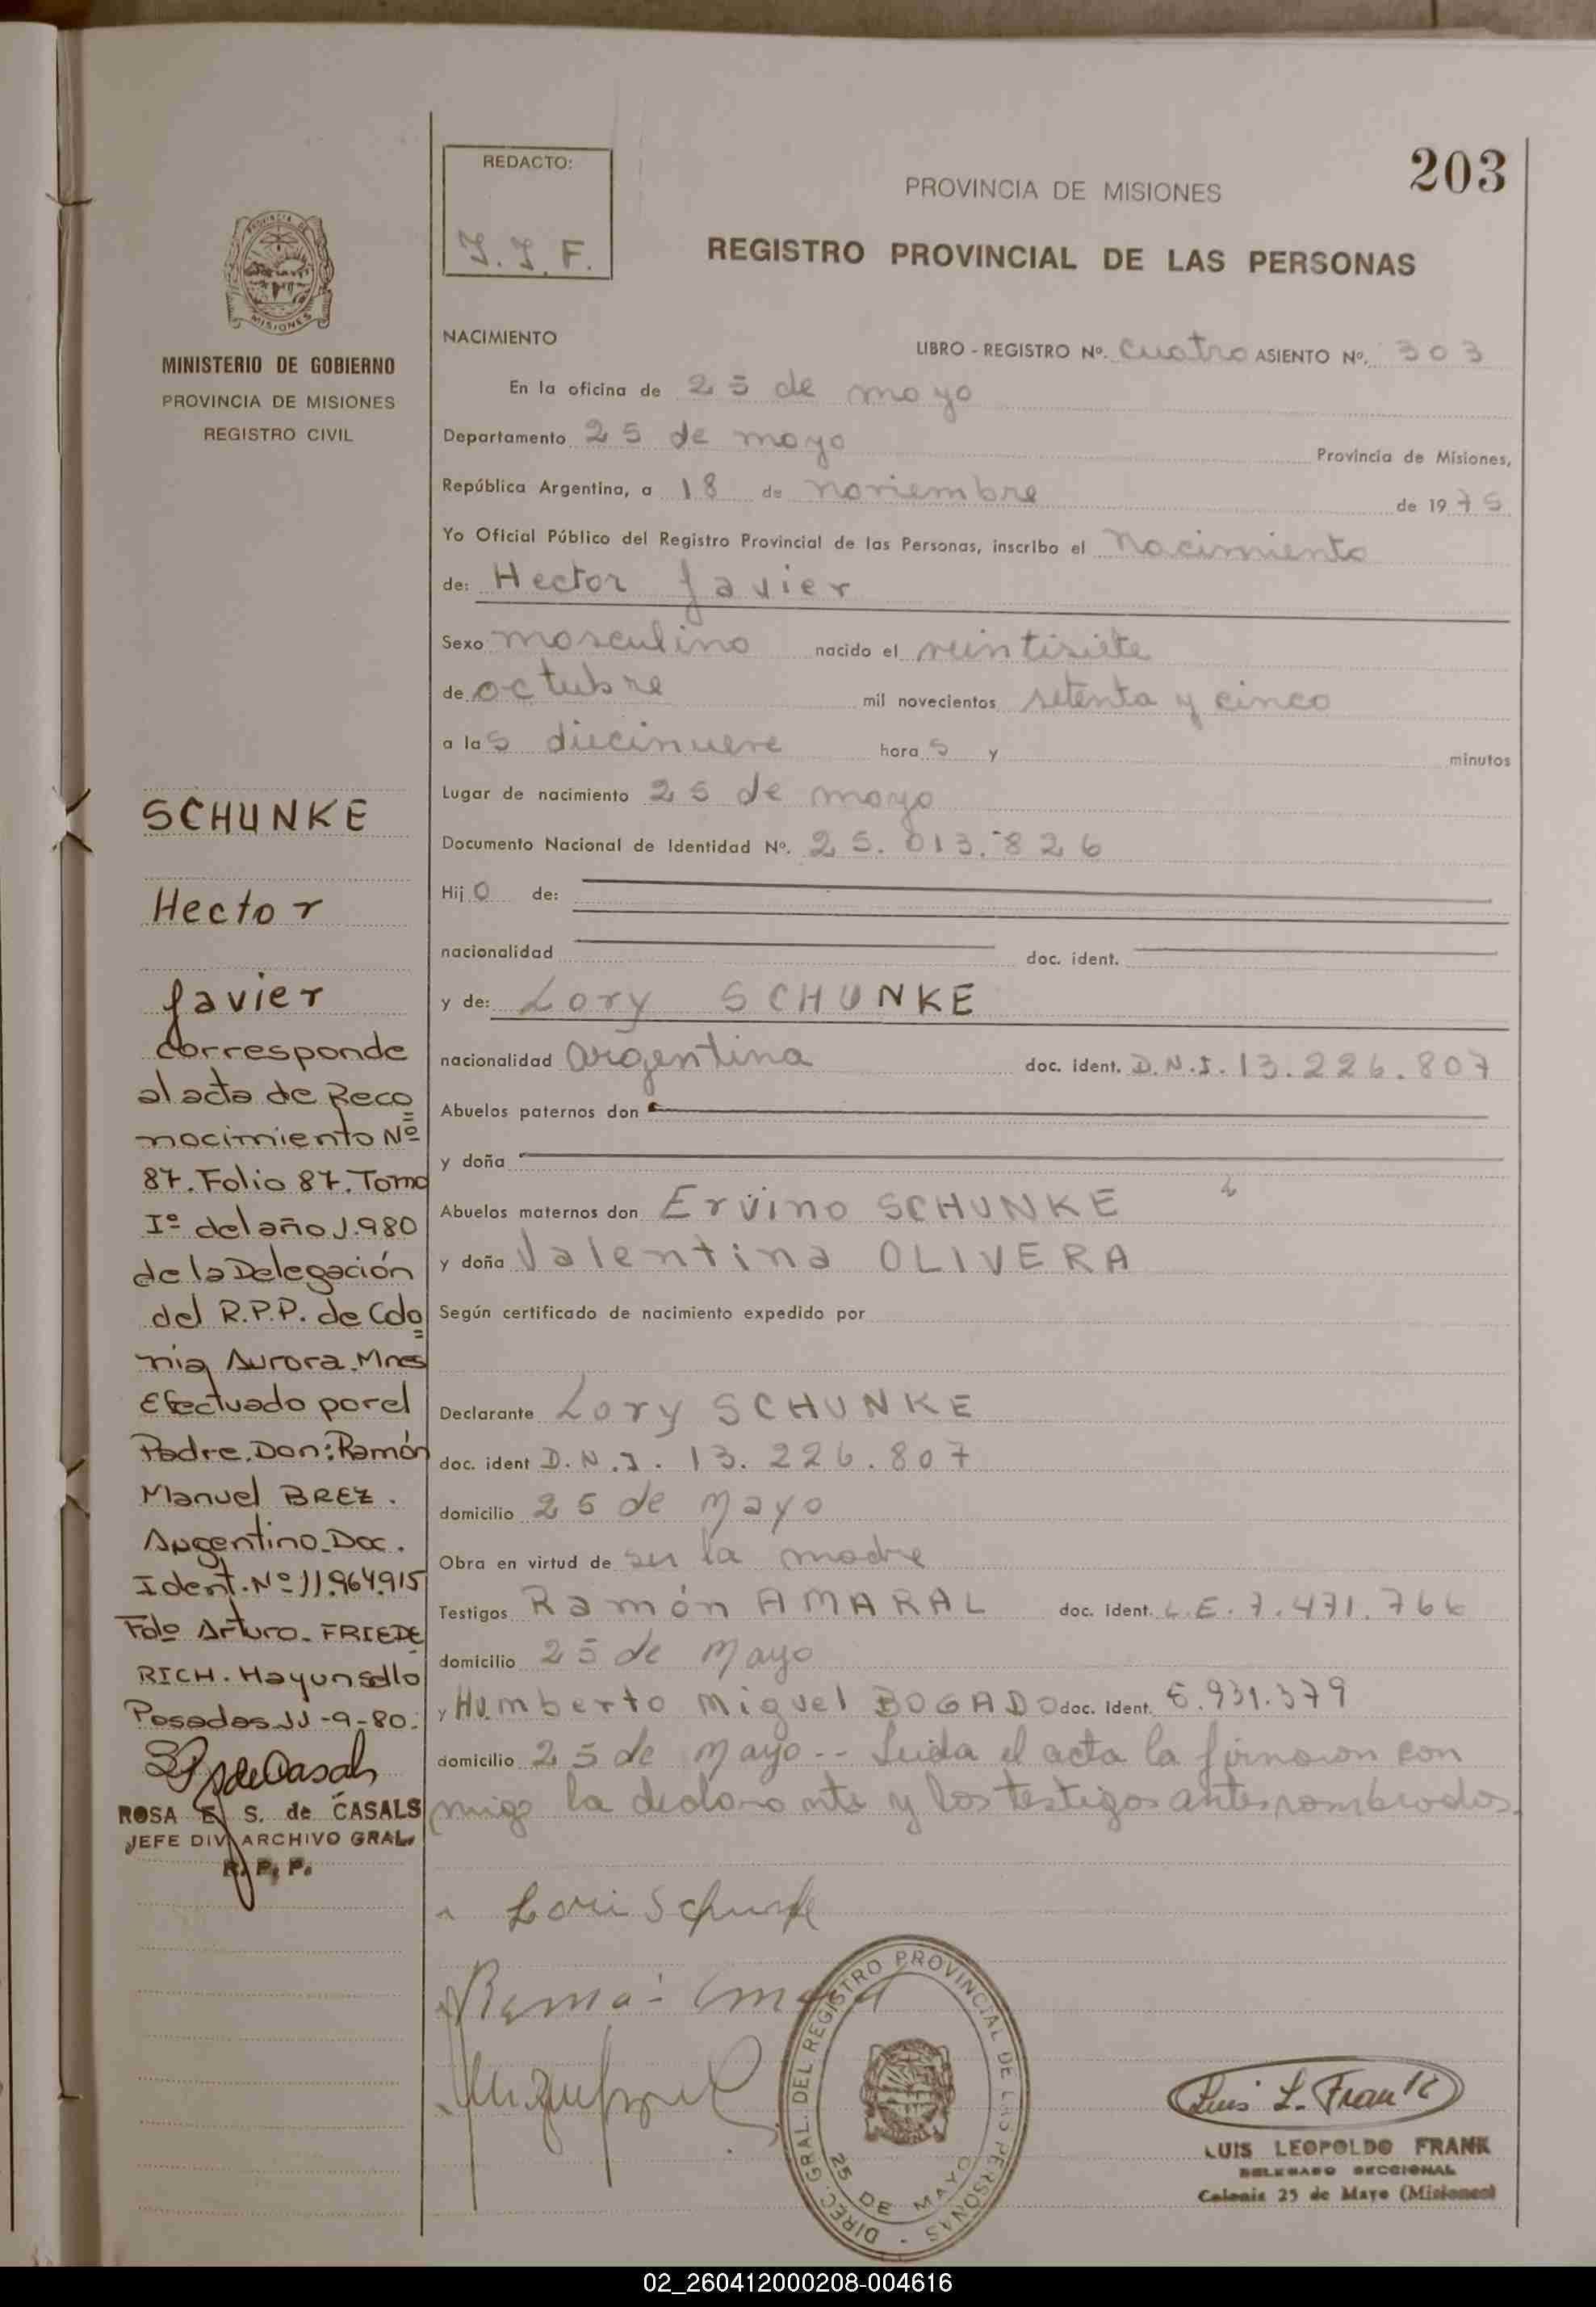 203
REDACTO:
J. J. F.
PROVINCIA DE MISIONES
REGISTRO PROVINCIAL DE LAS PERSONAS
PROVINCIA DE
MISIONES
MINISTERIO DE GOBIERNO
PROVINCIA DE MISIONES
REGISTRO CIVIL
NACIMIENTO
LIBRO - REGISTRO Nº. Cuatro ASIENTO Nº. 303
En la oficina de 25 de mayo
Departamento 25 de mayo
Provincia de Misiones,
República Argentina, a 18 de noviembre de 1975
Yo Oficial Público del Registro Provincial de las Personas, inscribo el Nacimiento
de: Hector Javier
Sexo masculino nacido el veintisiete
de octubre mil novecientos setenta y cinco
a las diecinueve horas y minutos
Lugar de nacimiento 25 de mayo
Documento Nacional de Identidad Nº. 25.013.826
Hijo de:
nacionalidad doc. ident.
y de: Lory SCHUNKE
nacionalidad argentina doc. ident. D.N.I. 13.226.807
Abuelos paternos don
y doña
Abuelos maternos don Ervino SCHUNKE
y doña Valentina OLIVERA
Según certificado de nacimiento expedido por
Declarante Lory SCHUNKE
doc. ident D.N.I. 13.226.807
domicilio 25 de Mayo
Obra en virtud de ser la madre
Testigos Ramón AMARAL doc. ident. L.E. 7.471.766
domicilio 25 de Mayo
y Humberto Miguel BOGADO doc. ident. 5.931.379
domicilio 25 de Mayo -- Leida el acta la firmaron con
migo la declarante y los testigos antes nombrados.
SCHUNKE
Hector
Javier
corresponde
al acta de Reco=
nocimiento Nº
87. Folio 87. Tomo
Iº del año 1.980
de la Delegación
del R.P.P. de Colo=
nia Aurora. Mnes
Efectuado por el
Padre. Don: Ramón
Manuel BREZ.
Argentino. Doc.
Ident. Nº 11.964.915
Fdo Arturo. FRIEDE
RICH. Hay un sello
Posadas 11-9-80.
ROSA E. S. de CASALS
JEFE DIV. ARCHIVO GRAL.
R. P. P.
Lori Schunke
DIREC. GRAL. DEL REGISTRO PROVINCIAL DE LAS PERSONAS
25 DE MAYO
Luis L. Frank
LUIS LEOPOLDO FRANK
DELEGADO SECCIONAL
Colonia 25 de Mayo (Misiones)
02_260412000208-004616